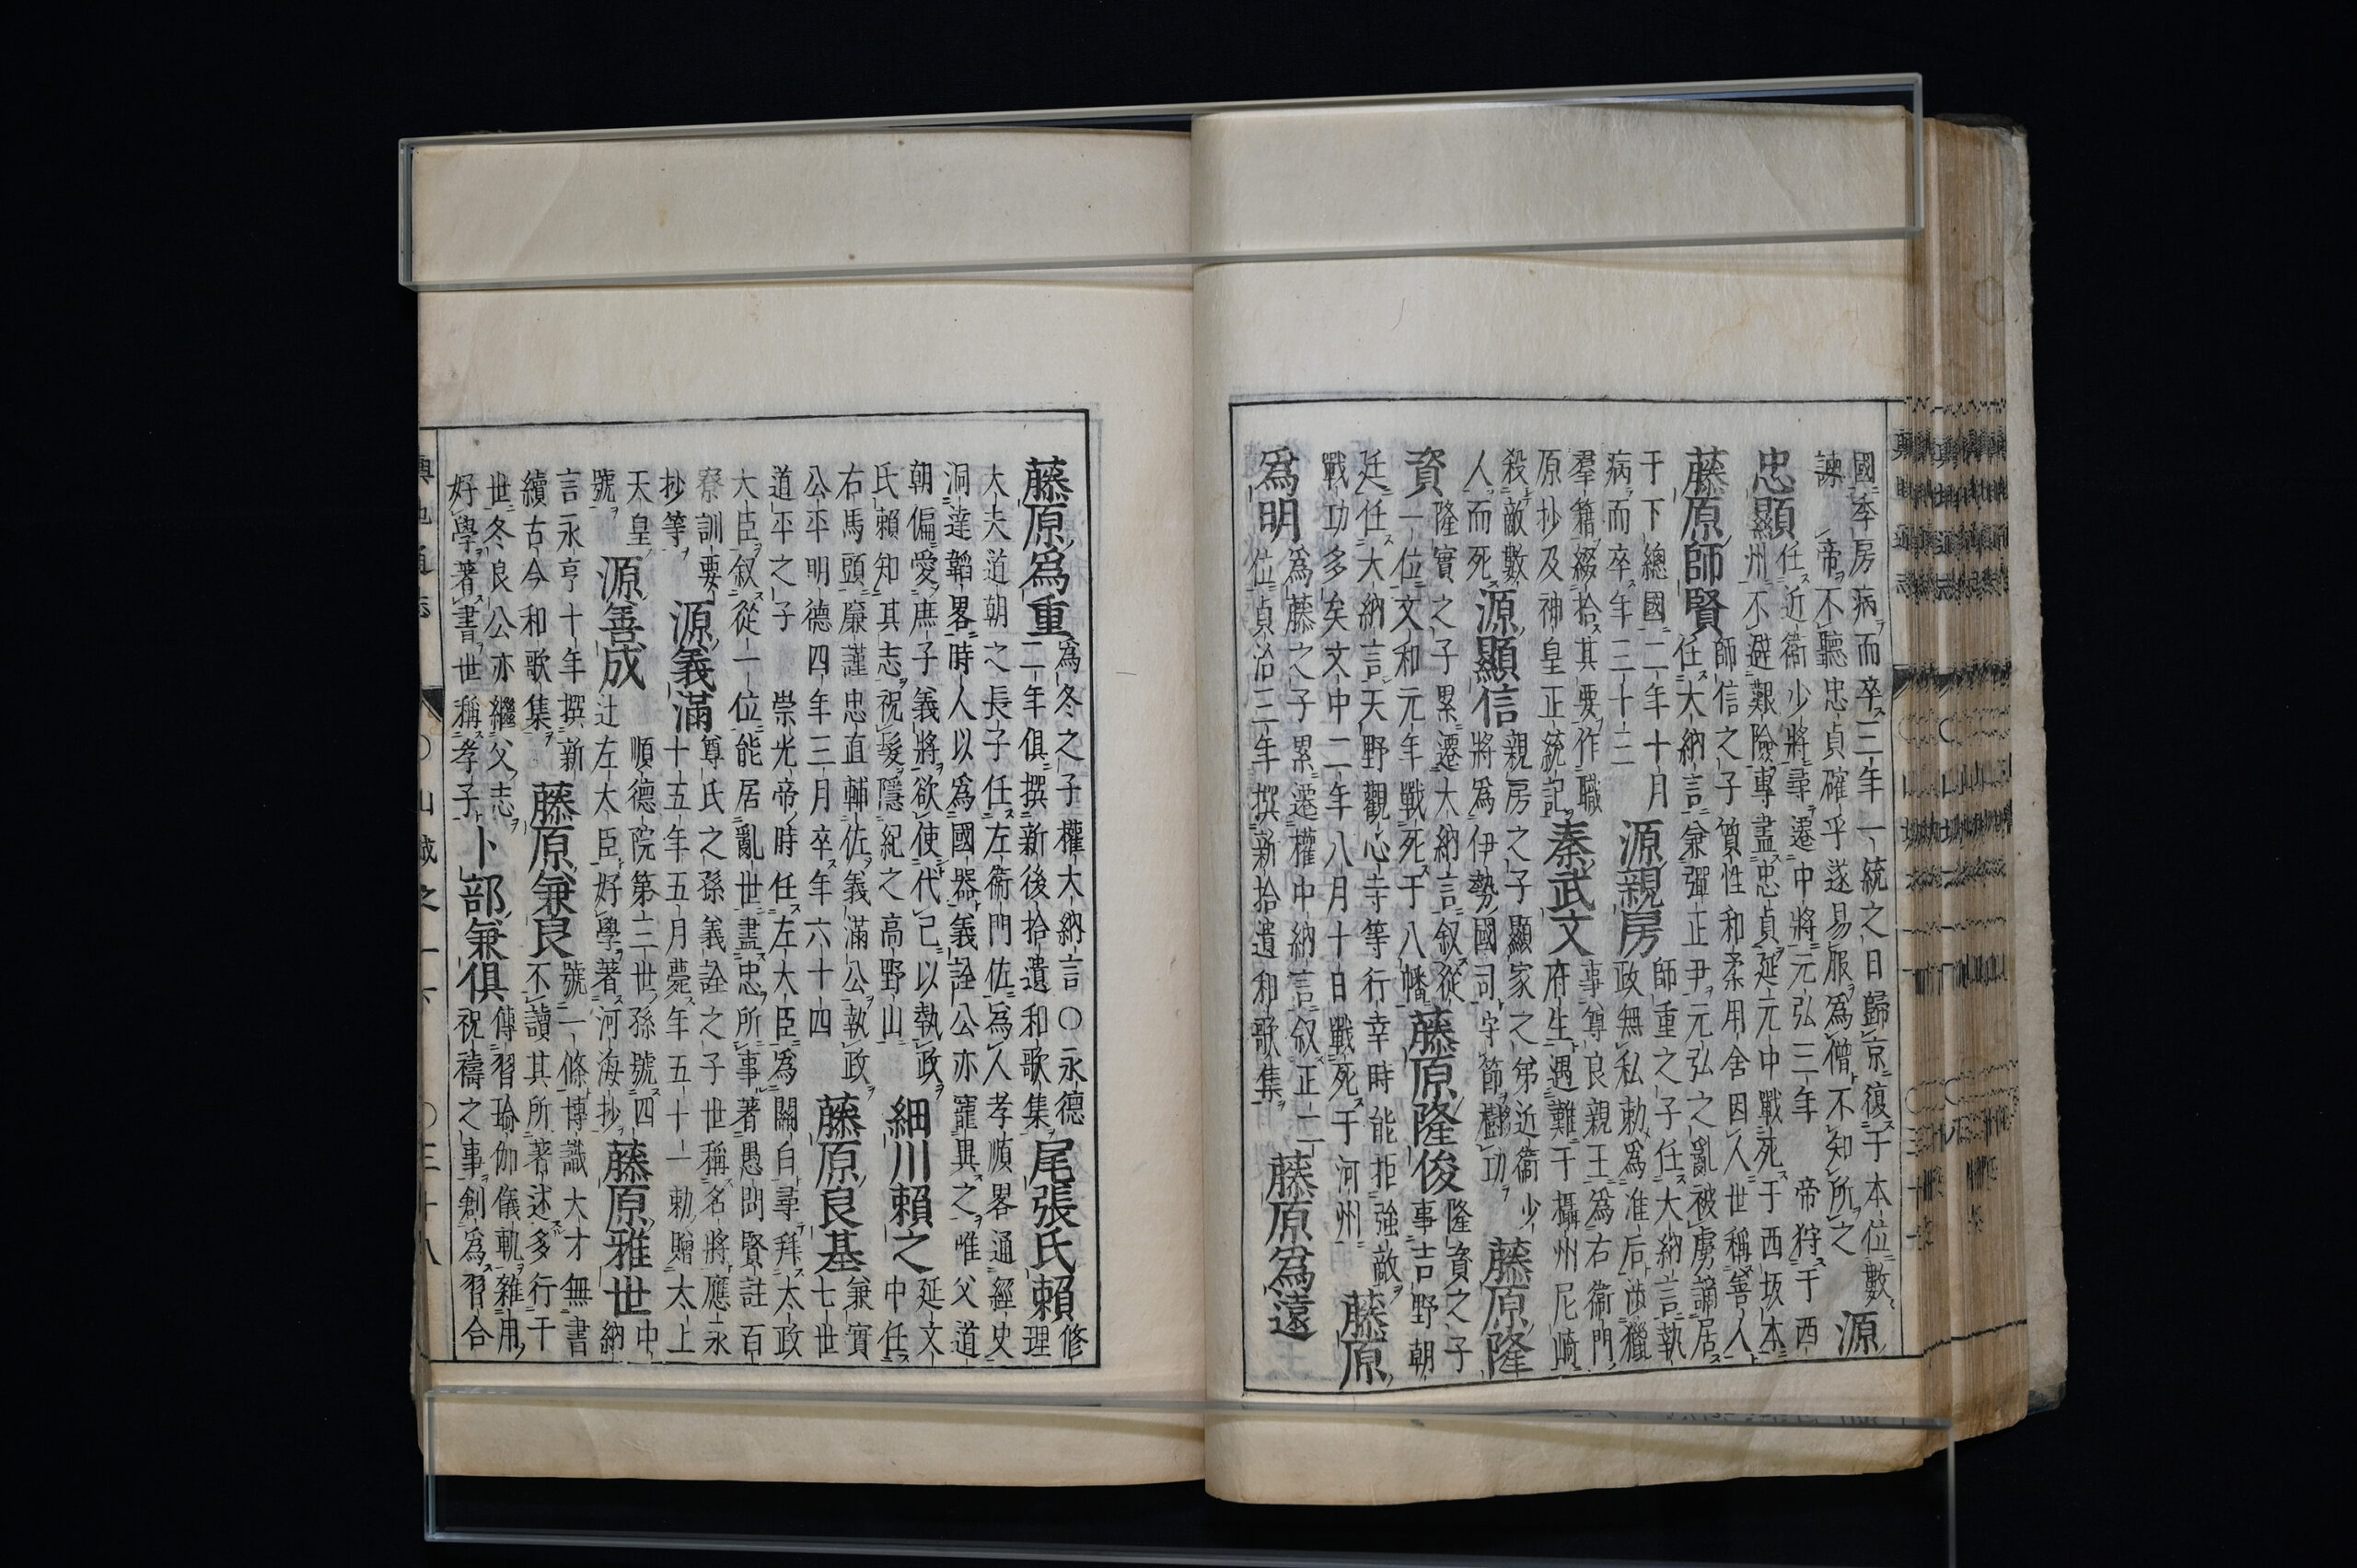 國季房病而卒三年一統之日歸京復于本位數
諫 帝不聽忠貞確乎遂易服爲僧不知所之
源
忠顯
任近衞少將尋遷中將元弘三年 帝狩于西
州不避艱險專盡忠貞延元中戰死于西坂本
藤原師賢
師信之子質性和柔用舍因人世稱善人
任大納言兼彈正尹元弘之亂被虜謫居
于下總國二年十月
病而卒年三十二
源親房
師重之子任大納言執
政無私勅爲准后渉獵
羣籍綴拾其要作職
原抄及神皇正統記
秦武文
事尊良親王爲右衞門
府生遇難于攝州尼崎
殺敵數
人而死
源顯信
親房之子顯家之弟近衞少
將爲伊勢國司守節樹功
藤原隆
資
隆實之子累遷大納言叙從
一位文和元年戰死于八幡
藤原隆俊
隆資之子
事吉野朝
廷任大納言天野觀心寺等行幸時能拒強敵
戰功多矣文中二年八月十日戰死于河州
藤原
爲明
爲藤之子累遷權中納言叙正二
位貞治三年撰新拾遺和歌集
藤原爲遠
藤原爲重
爲冬之子權大納言○永德
二年俱撰新後拾遺和歌集
尾張氏賴
修
理
大夫道朝之長子任左衞門佐爲人孝順畧通經史
洞達韜畧時人以爲國器義詮公亦寵異之唯父道
朝偏愛庶子義將欲使代己以執政
氏賴知其志祝髮隱紀之高野山
細川賴之
延文
中任
右馬頭廉謹忠直輔佐義滿公執政
公平明德四年三月卒年六十四
藤原良基
兼實
七世
道平之子 崇光帝時任左大臣爲關白尋拜太政
大臣叙從一位能居亂世盡忠所事著愚問賢註百
寮訓要
抄等
源義滿
尊氏之孫義詮之子世稱名將應永
十五年五月薨年五十一勅贈太上
天皇
號
源善成
順德院第三世孫號四
辻左大臣好學著河海抄
藤原雅世
中
納
言永亨十年撰新
續古今和歌集
藤原兼良
號一條博識大才無書
不讀其所著述多行于
世冬良公亦繼父志
好學著書世稱孝子
卜部兼俱
傳習瑜伽儀軌雜用
祝禱之事創爲習合
○山城之一下 ○三十八